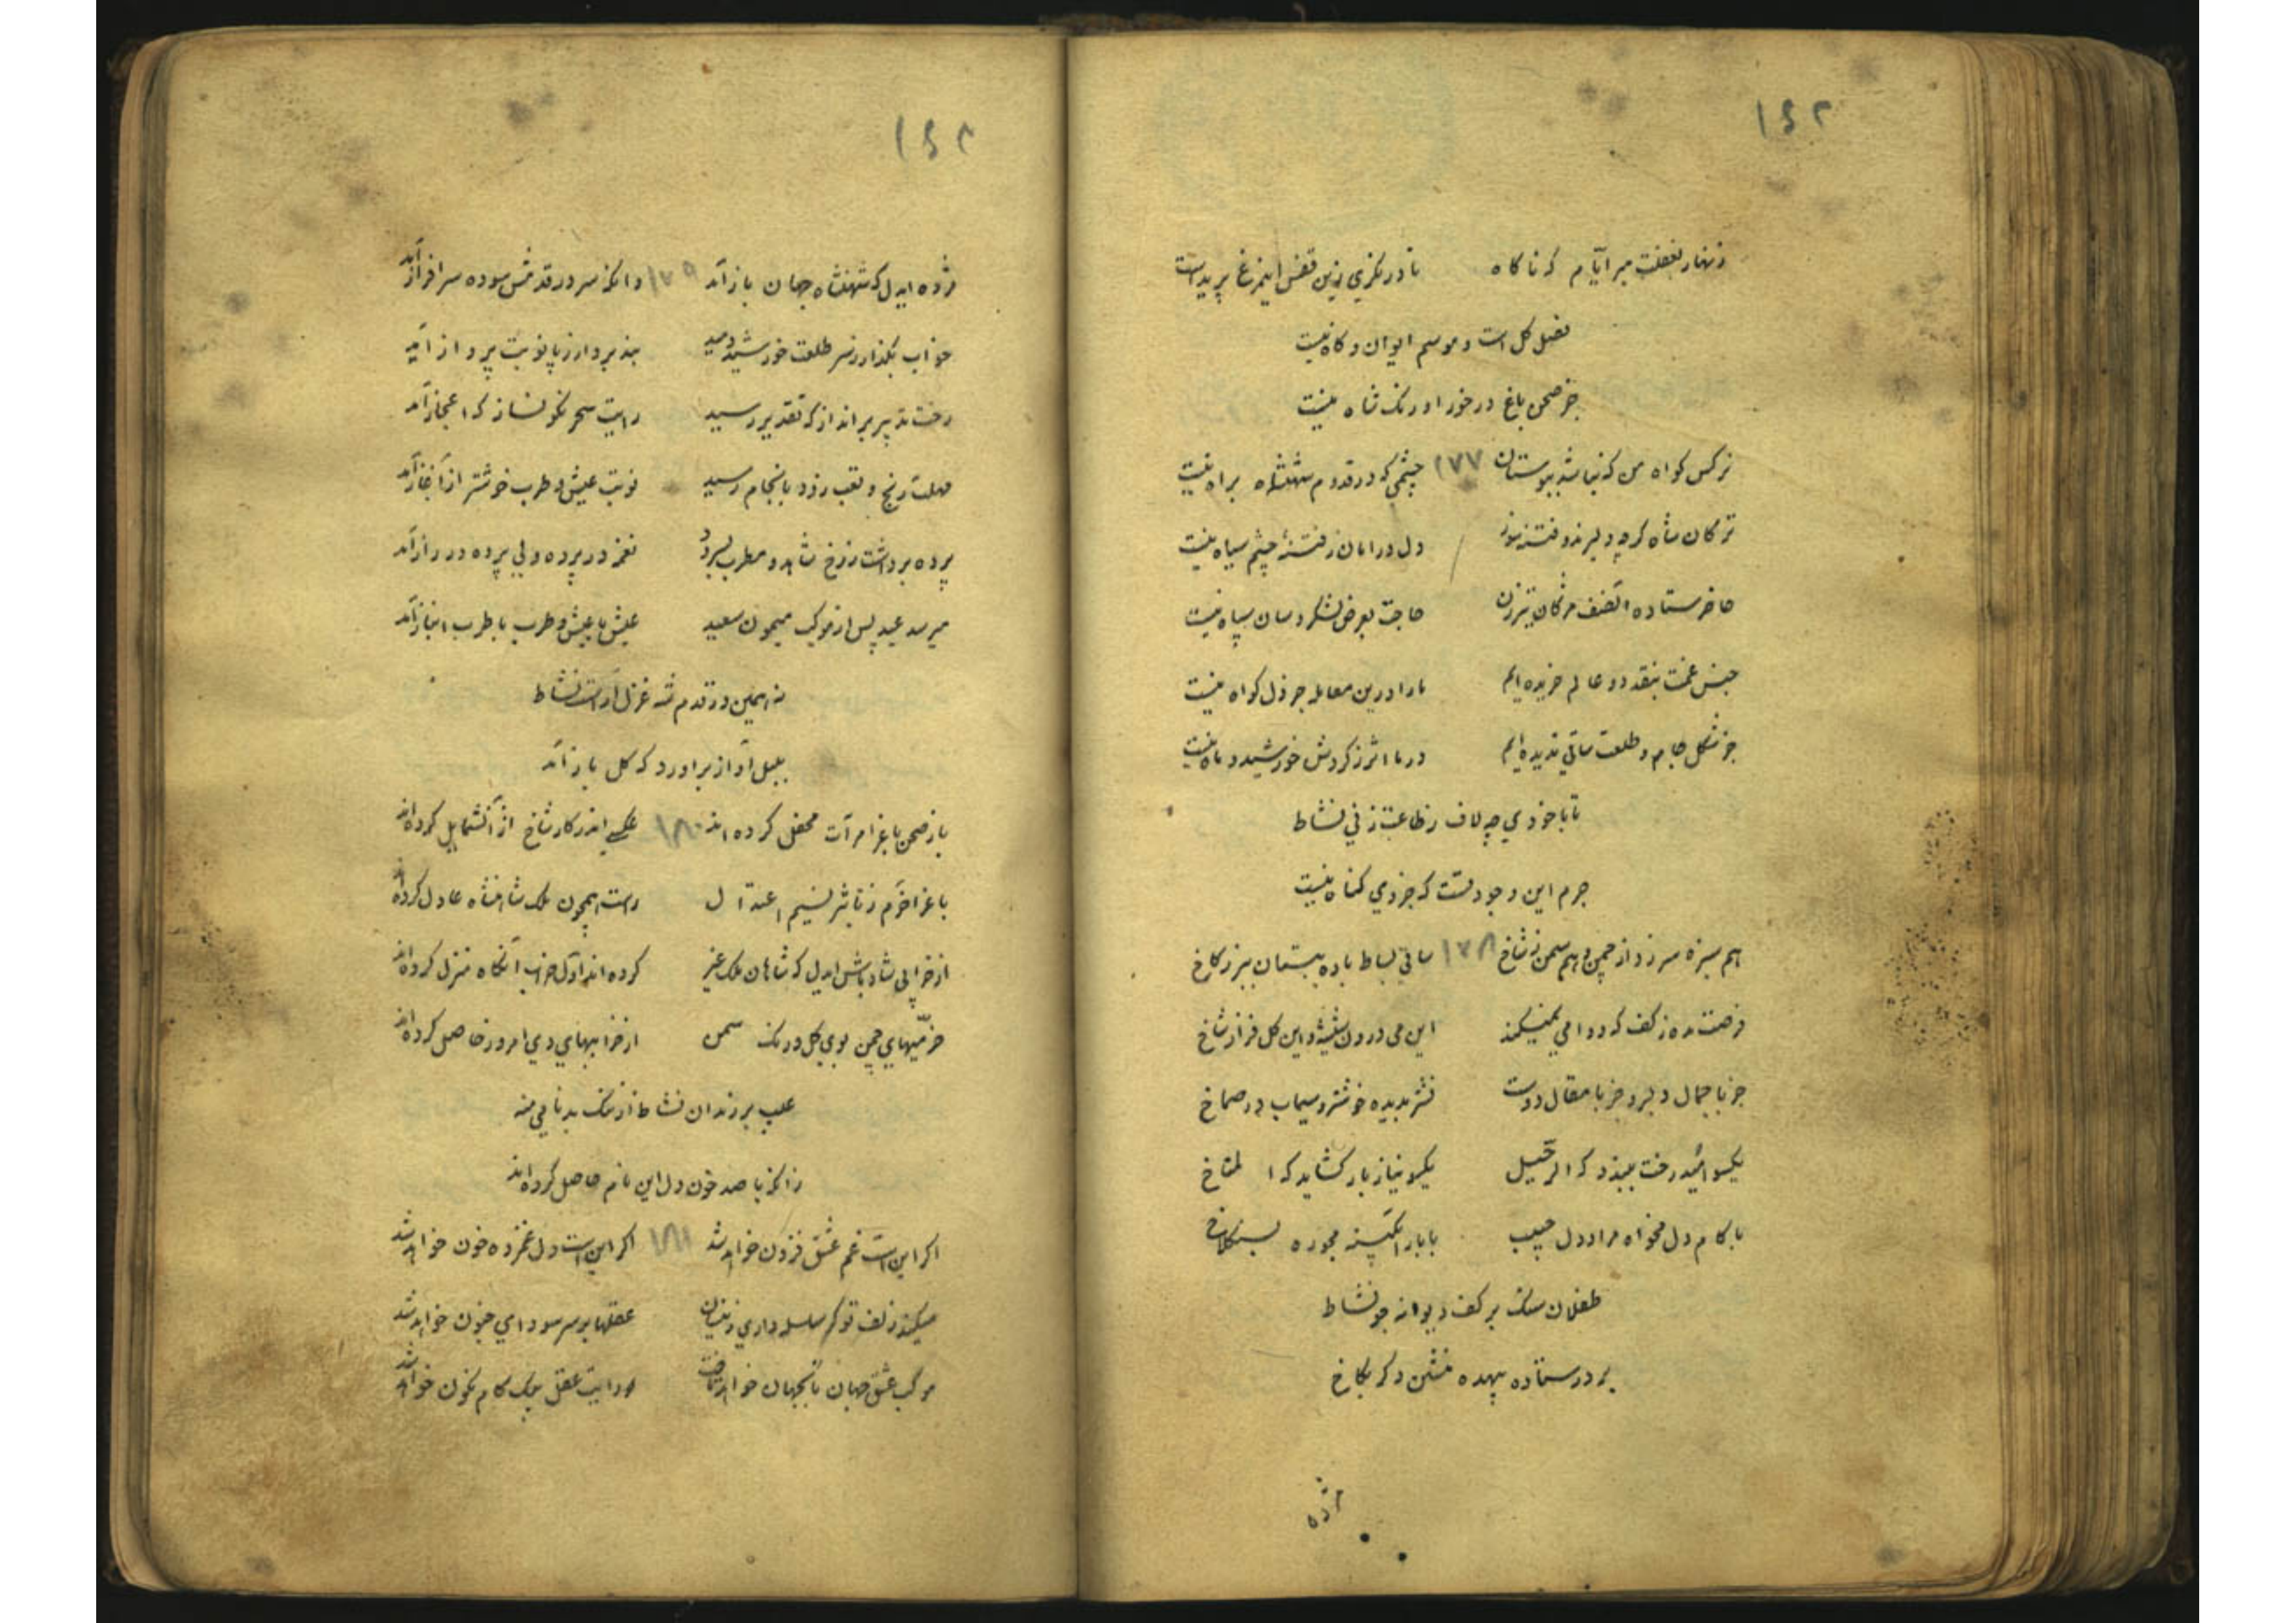 ۱۴۲
زنهار بغفلت مبر ایام که ناکاه تا در نکری زین قفس اینمرغ پریدست
فصل کل است و موسم ایوان و کاه نیست
جز صحن باغ درخور اورنک شاه نیست
نرکس کواه من که نباشد ببوستان ۱۷۷ چشمی که در قدوم شهنشاه براه نیست
ترکان شاه کرچه دلبرند و فتنه دل در امان ز فتنهٔ چشم سیاه نیست
حاضر ستاده آنصف مژکان تیرزن حاجت بعرض لشکر و سان سپاه نیست
جنس غمت بنقد دو عالم خریده‌ایم ما را درین معامله جز دل کواه نیست
جز شکل جام و طلعت ساقی ندیده‌ایم در ما اثر ز کردش خورشید و ماه نیست
تا با خودی چه لاف ز طاعت زنی نشاط
جرم این وجود تست که جز وی کناه نیست
هم سبزه سر زد از چمن و هم سمن ز شاخ ۱۷۸ ساقی بساط باده ببستان ببر ز کاخ
فرصت مده ز کف که دوامی نمیکند این می درون شیشه و این کل فراز شاخ
جز با جمال دلبر و جز با مقال دوست نشتر بدیده خوشتر و سیماب در صماخ
یکسو امید رخت ببندد که الرحیل یکسو نیاز بار کشاید که المناخ
با کام دل مخواه مراد دل حبیب با بار آبکینه مجو ره بسنکلاخ
طفلان سنک بر کف دیوانه جو نشاط
بر در ستاده بیهده منشین دکر بکاخ
مژده
۱۴۲
مژده ایدل که شهنشاه جهان باز آمد ۱۷۹ وانکه سر در قدمش سوده سرافراز آمد
خواب بکذار ز سر طلعت خورشید دمید بند بردار ز پا نوبت پرواز آمد
رخت تدبیر برانداز که تقدیر رسید رایت سحر نکونساز که اعجاز آمد
مهلت رنج و تعب زود بانجام رسید نوبت عیش و طرب خوشتر از آغاز آمد
پرده برداشت ز رخ شاهد و مطرب بسرود نغمه در پرده ولی پرده در راز آمد
میرسد عید پس از موکب میمون سعید عیش با عیش و طرب با طرب انباز آمد
نه همین در قدم شه غزل آراست نشاط
بلبل آواز برآورد که کل باز آمد
باز صحن باغ را مرآت محفل کرده‌اند ۱۸۰ عکسی اندر کار شاخ از آنشمایل کرده‌اند
باغ را خرم ز تاثیر نسیم اعتدال راست همچون ملک شاهنشاه عادل کرده‌اند
از خرابی شاد باش ایدل که شاهان ملک غیر کرده‌اند اول خراب آنکاه منزل کرده‌اند
خرمیهای چمن بوی کل و رنک سمن از خرابیهای دی امروز حاصل کرده‌اند
عیب بر رندان نشاط از ننک بدنامی منه
زانکه با صد خون دل این نام حاصل کرده‌اند
اکر این است غم عشق فزون خواهد شد ۱۸۱ اکر این است دل غمزده خون خواهد شد
میکند زلف تو کر سلسله داری زینسان عقلها بر سر سودای جنون خواهد شد
موکب عشق جهان تا بجهان خواهد تاخت رایت عقل بیک کام نکون خواهد شد